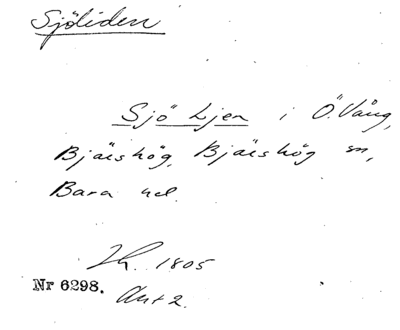 Sjöliden
Sjö Ljen i Ö. Vång,
Bjärshög, Bjärshög sn,
Bara hd.
Lh. 1805
Nr 6298.
Akt 2.